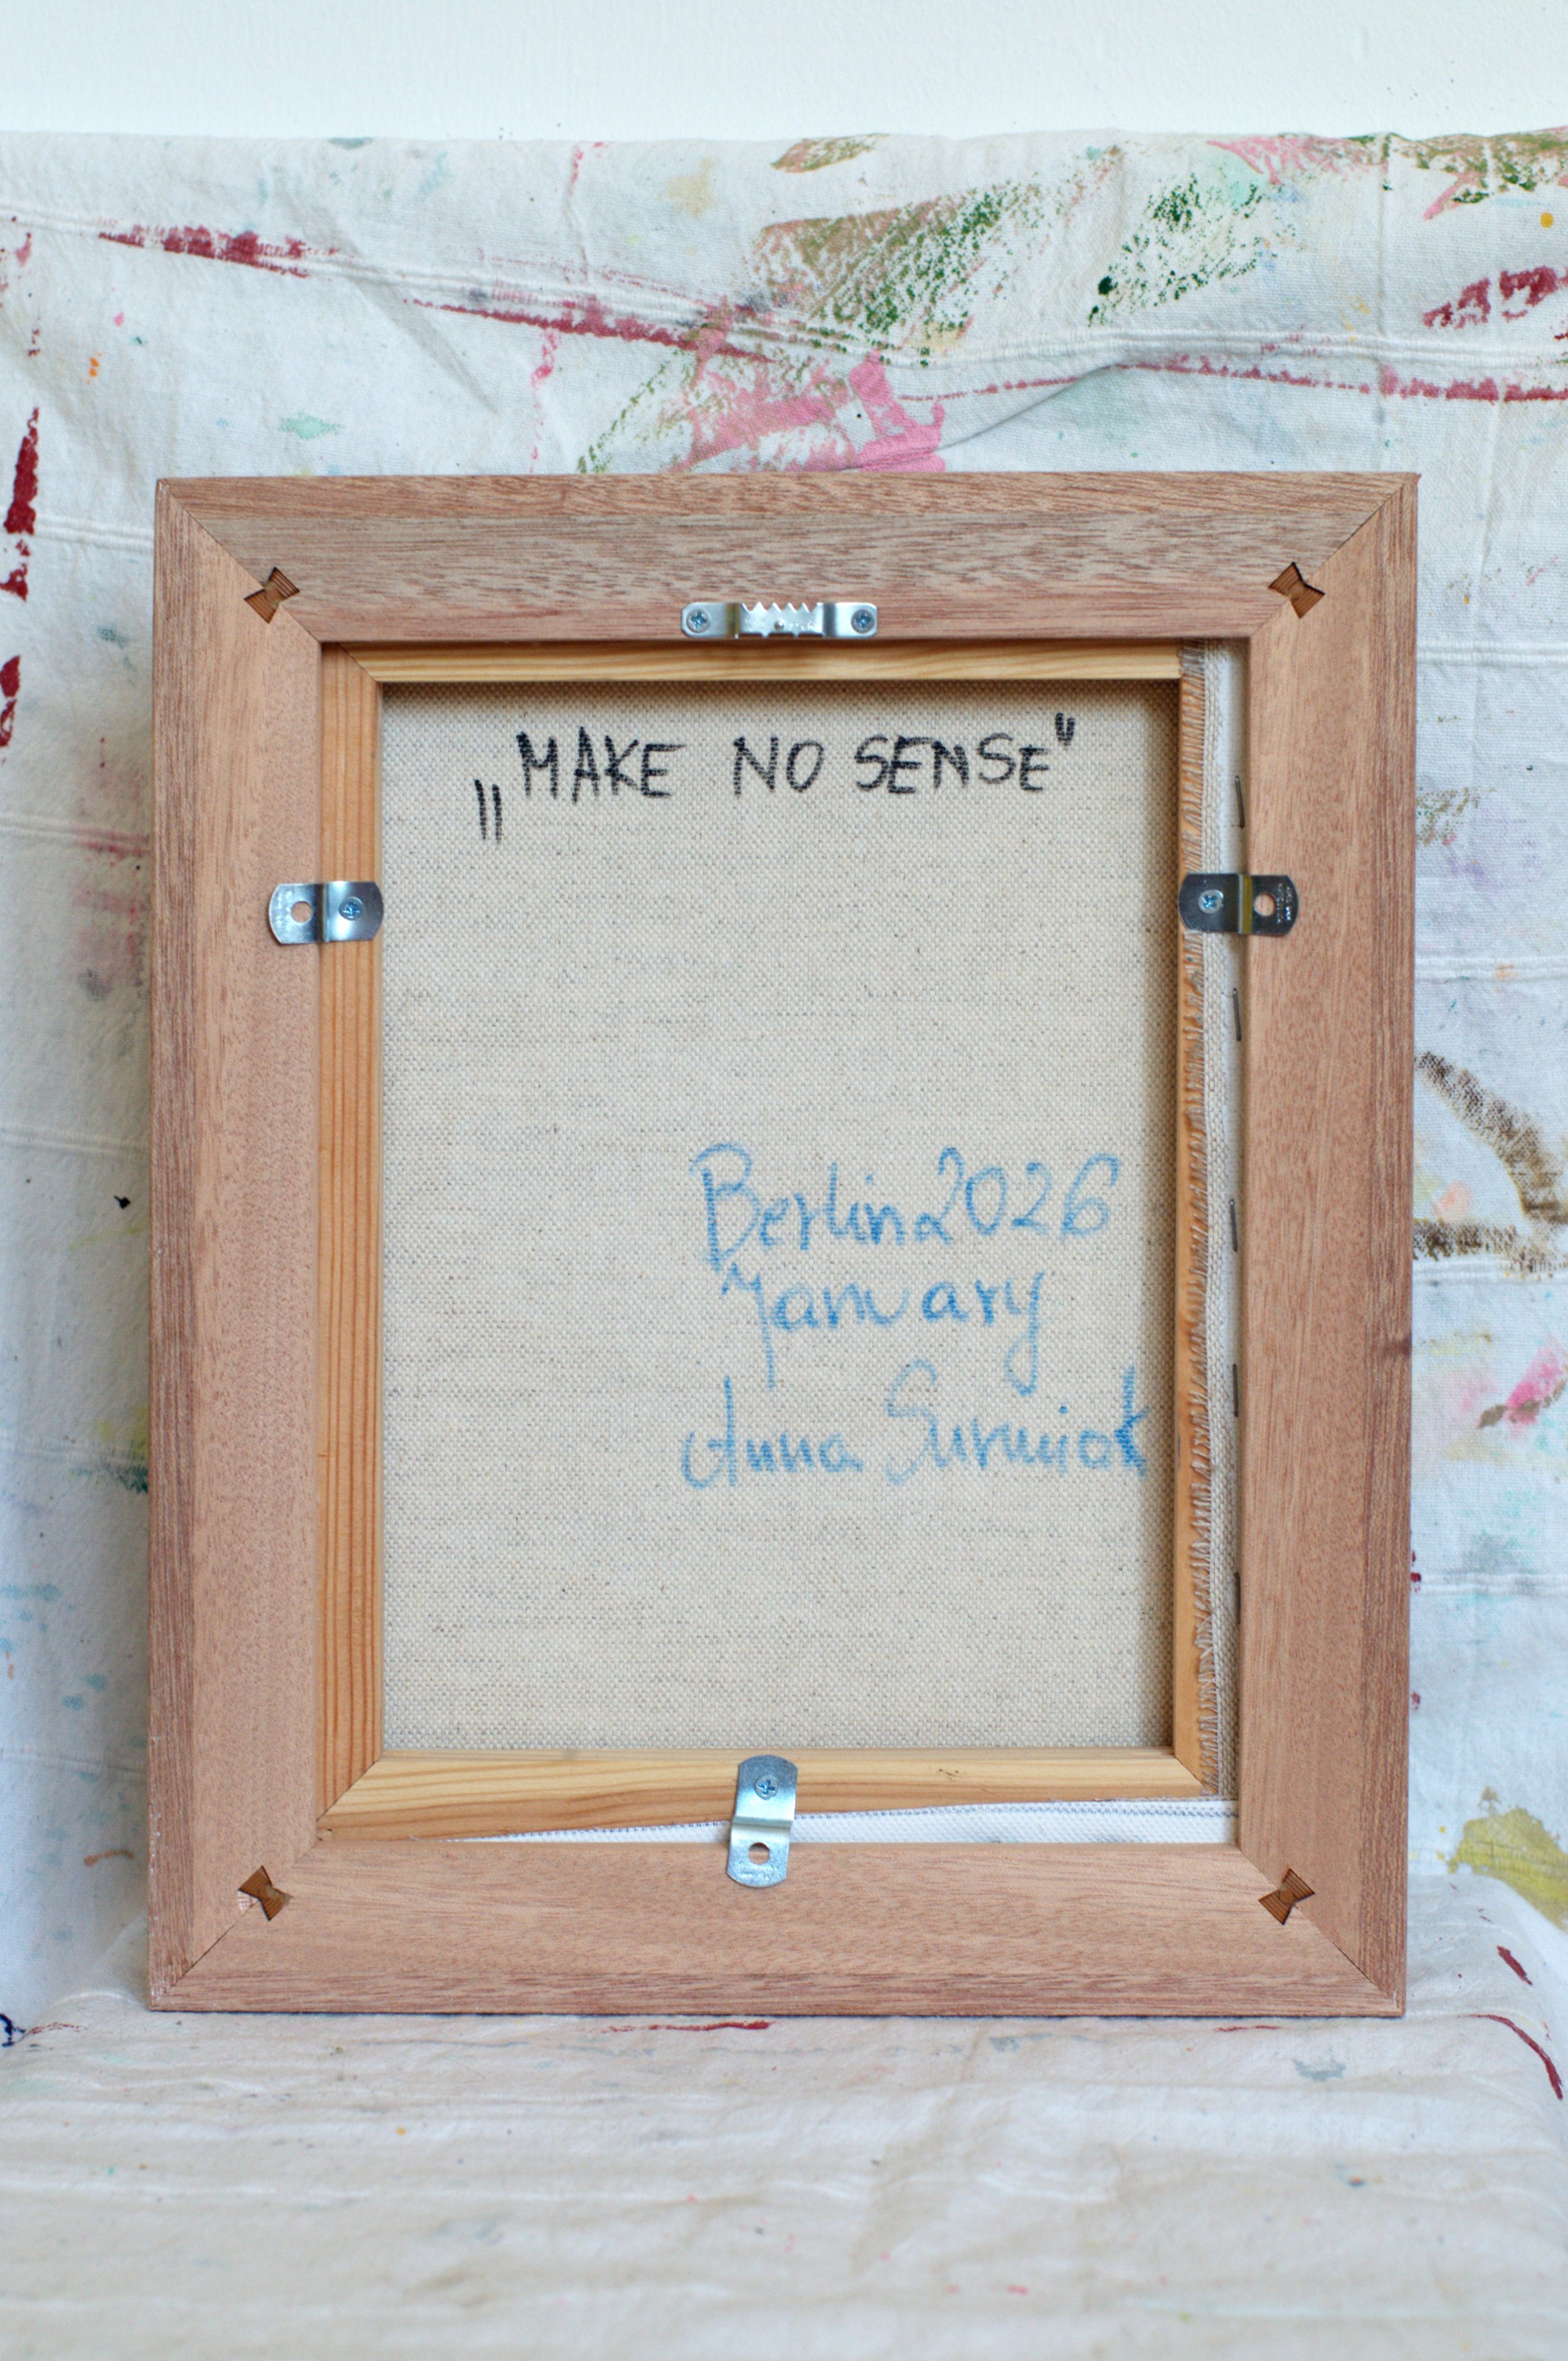 „MAKE NO SENSE"
Berlin 2026
January
Anna Surmiok